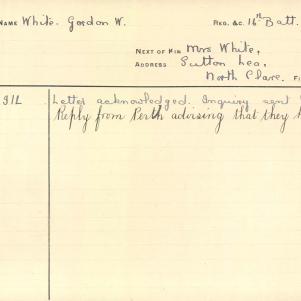 NAME White. Gordon W. REG. &C. 16th Batt.
NEXT OF KIN Mrs White,
ADDRESS Sutton Lea,
North Clare.
Letter acknowledged. Inquiry sent
Reply from Perth advising that they